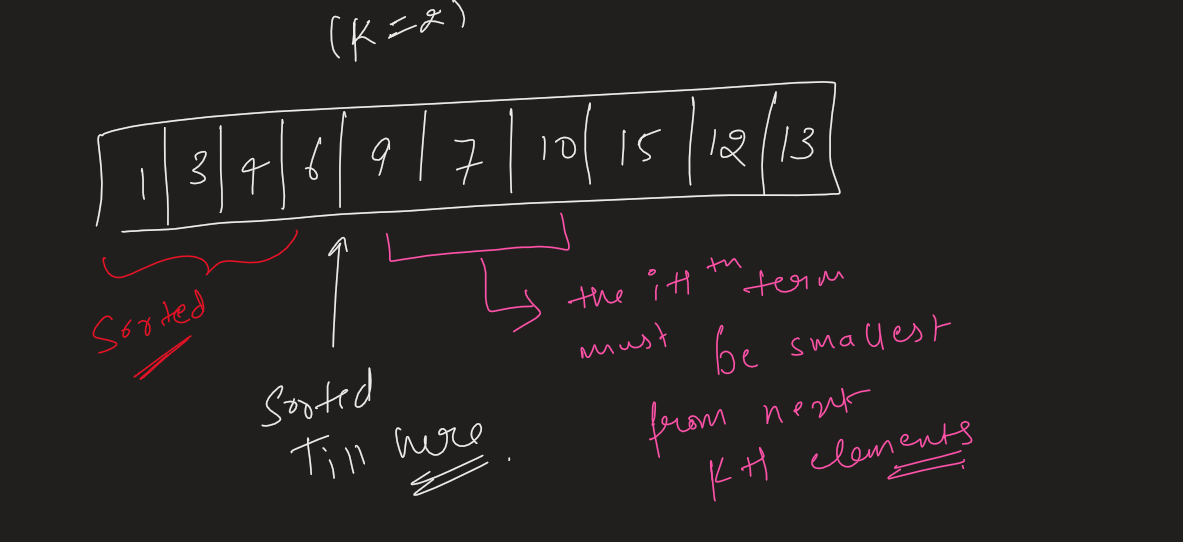 (K=2)
1 3 4 6 9 7 10 15 12 13
Sorted
Sorted
Till here.
the i+1 th term
must be smallest
from next
K+1 elements